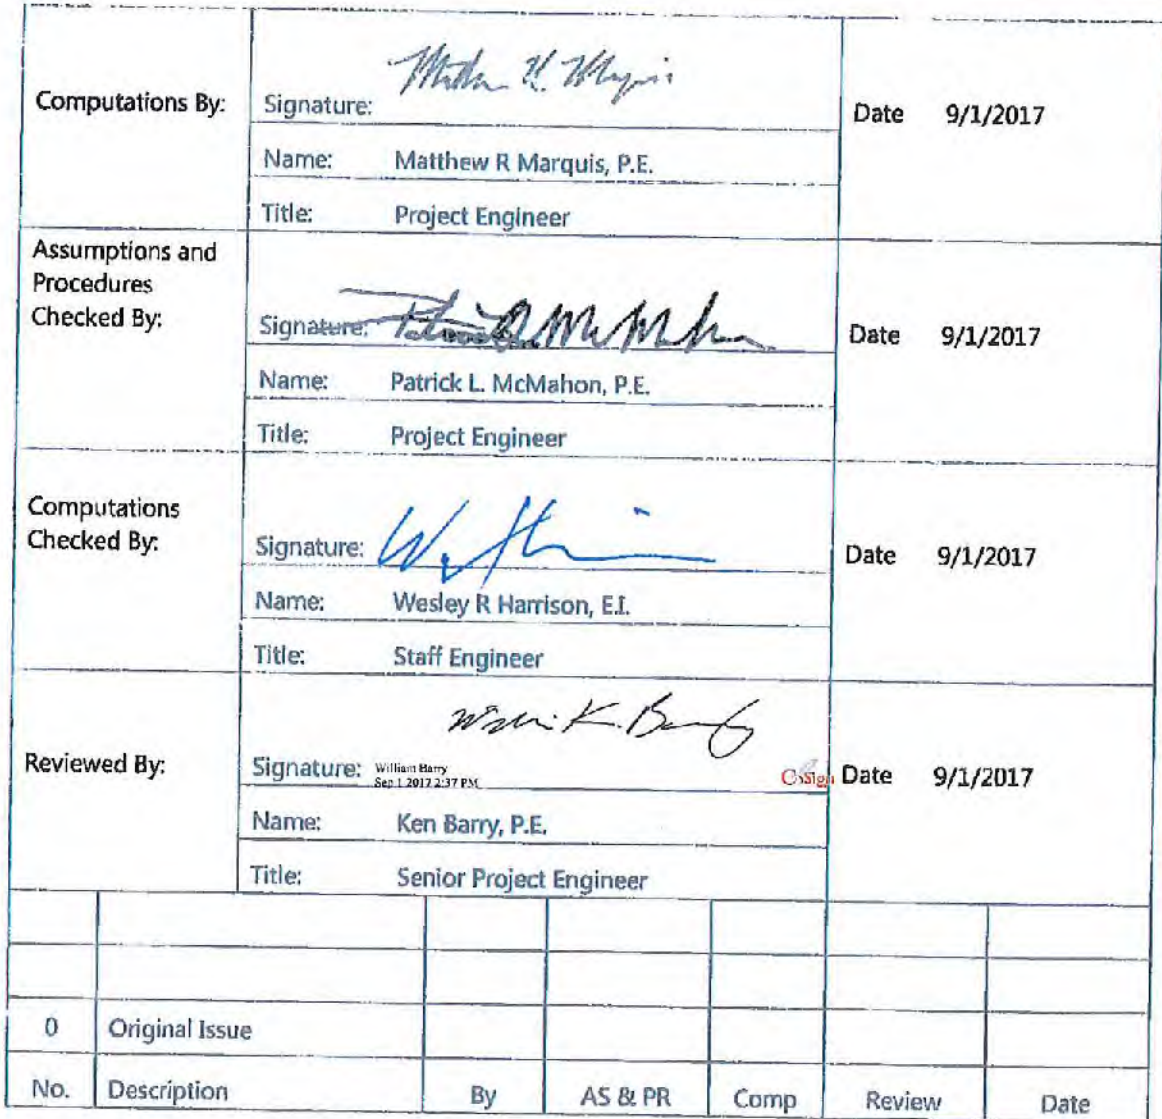 Computations By:
Signature:
Date 9/1/2017
Name: Matthew R Marquis, P.E.
Title: Project Engineer
Assumptions and
Procedures
Checked By:
Signature:
Date 9/1/2017
Name: Patrick L. McMahon, P.E.
Title: Project Engineer
Computations
Checked By:
Signature:
Date 9/1/2017
Name: Wesley R Harrison, E.I.
Title: Staff Engineer
Reviewed By:
Signature: William Barry
Sep 1 2017 2:37 PM
CoSign
Date 9/1/2017
Name: Ken Barry, P.E.
Title: Senior Project Engineer
0 Original Issue
No. Description By AS & PR Comp Review Date